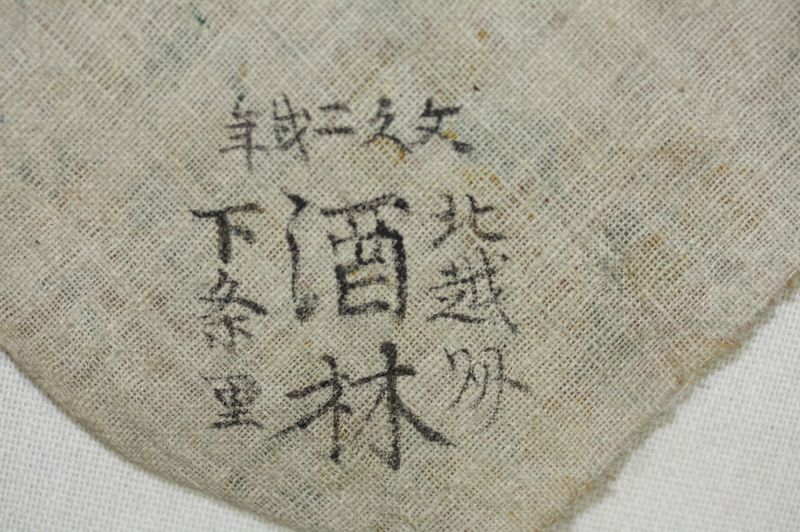 文久二戌年
北越
酒林
下条里